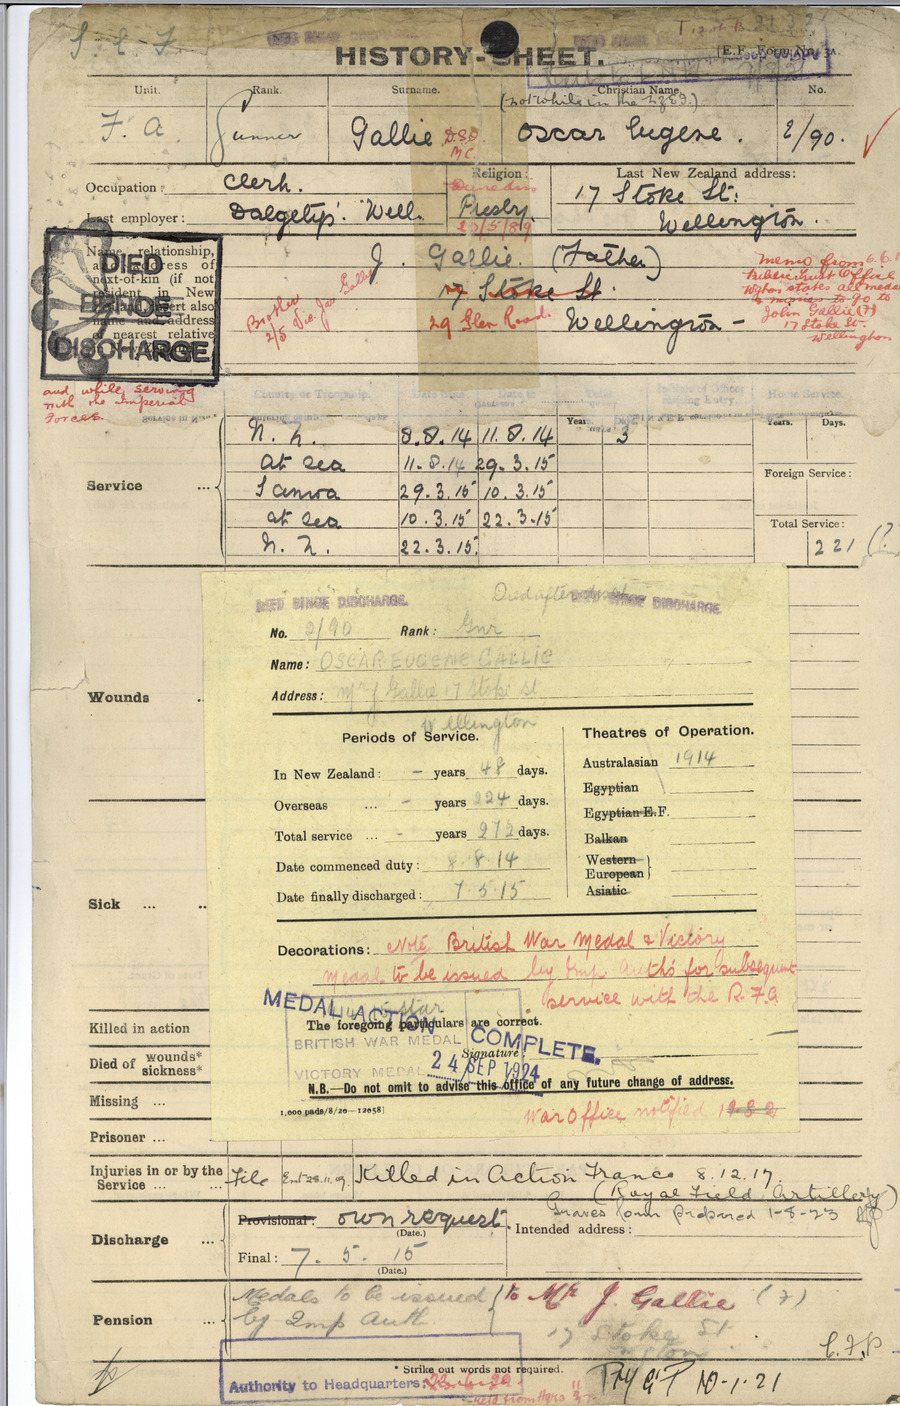 S. E. F.
HISTORY-SHEET.
[E.F. Form No. 3A.
Unit. Rank. Surname. Christian Name. No.
(not while in the NZEF.)
F. A Gunner Gallie D.S.O. M.C. Oscar Eugene. 2/90.
Occupation: Clerk.
Religion:
Last New Zealand address:
Dunedin
Presby.
20/5/89
17 Stoke St:
Wellington.
Last employer: Dalgety's. Well.
Name, relationship, and address of next-of-kin (if not resident in New Zealand, insert also name and address of nearest relative
DIED
BEFORE
DISCHARGE
J. Gallie. (Father)
17 Stoke St.
29 Glen Road. Wellington -
Brother
2/5 Vic. Jas Gallie
Memo from
Public Trust Office
Wgton states all medals
to go to
John Gallie (F)
17 Stoke St.
Wellington
and while serving
with the Imperial
Forces.
Service ...
Years. Days.
N. Z. 8.8.14 11.8.14 3
at sea 11.8.14 29.3.15
Samoa 29.3.15 10.3.15
at sea 10.3.15 22.3.15
N. Z. 22.3.15.
Home Service.
Years. Days.
Foreign Service:
Total Service:
221
Wounds ..
Sick ... ..
Killed in action
Died of wounds* sickness*
Missing ...
Prisoner ...
DIED SINCE DISCHARGE.
DIED SINCE DISCHARGE
No. 2/90 Rank: Gnr
Name: OSCAR EUGENE GALLIE
Address: Mr J Gallie 17 Stoke st
Wellington
Periods of Service.
In New Zealand: - years 48 days.
Overseas ... - years 224 days.
Total service ... - years 272 days.
Date commenced duty: 8.8.14
Date finally discharged: 7.5.15
Theatres of Operation.
Australasian 1914
Egyptian
Egyptian E.F.
Balkan
Western
European
Asiatic
Decorations: Note British War Medal & Victory
Medal to be issued by Imp Auth's for subsequent
service with the R.F.A
Star
MEDAL ACTION
The foregoing particulars are correct.
BRITISH WAR MEDAL
COMPLETE.
Signature
VICTORY MEDAL
24 SEP 1924
N.B.—Do not omit to advise this office of any future change of address.
1,000 pads/8/20—12658]
War Office notified
Injuries in or by the Service ... File Killed in Action France 8.12.17
(Royal Field Artillery)
Graves form prepared 1-8-23
Discharge ...
Provisional: own request.
(Date.)
Intended address:
Final: 7. 5. 15
(Date.)
Pension ...
Medals to be issued
by Imp Auth.
to Mr J. Gallie (F)
17 Stoke St
* Strike out words not required.
Authority to Headquarters:
10-1-21